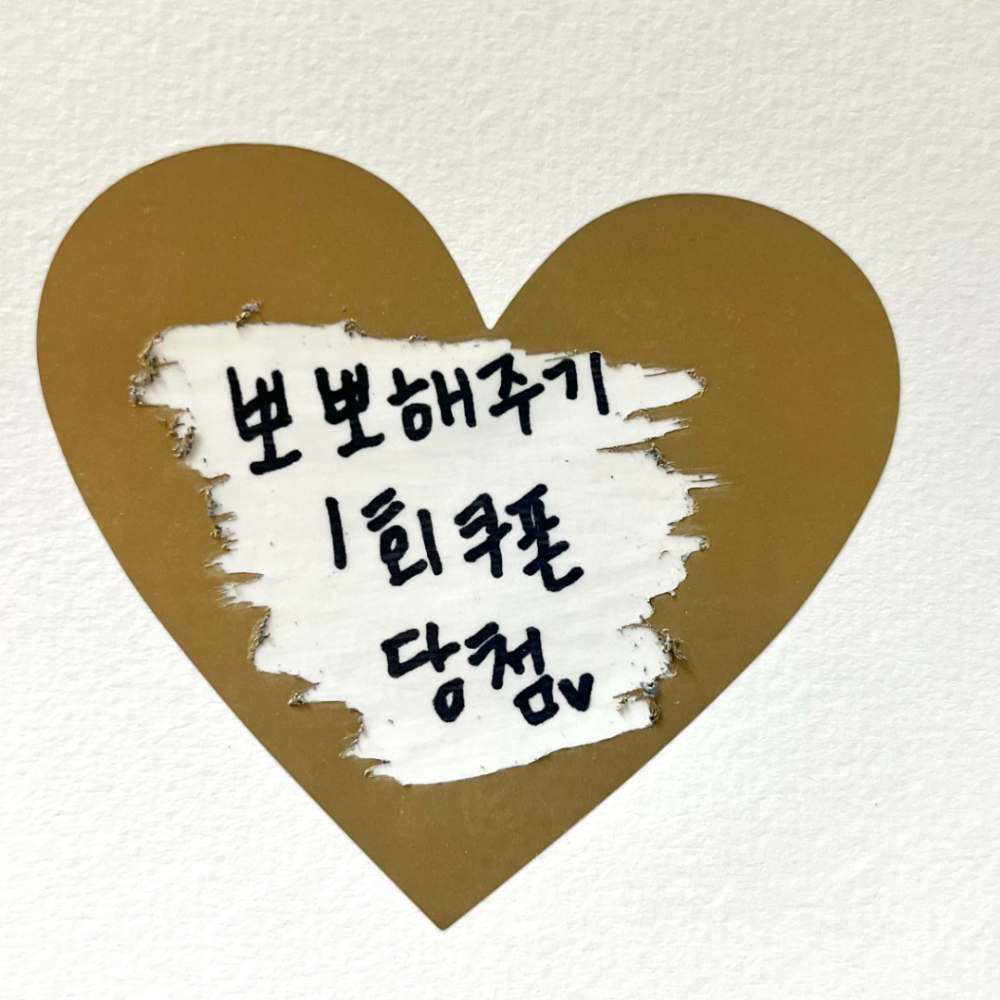 뽀뽀해주기
1회쿠폰
당첨♥